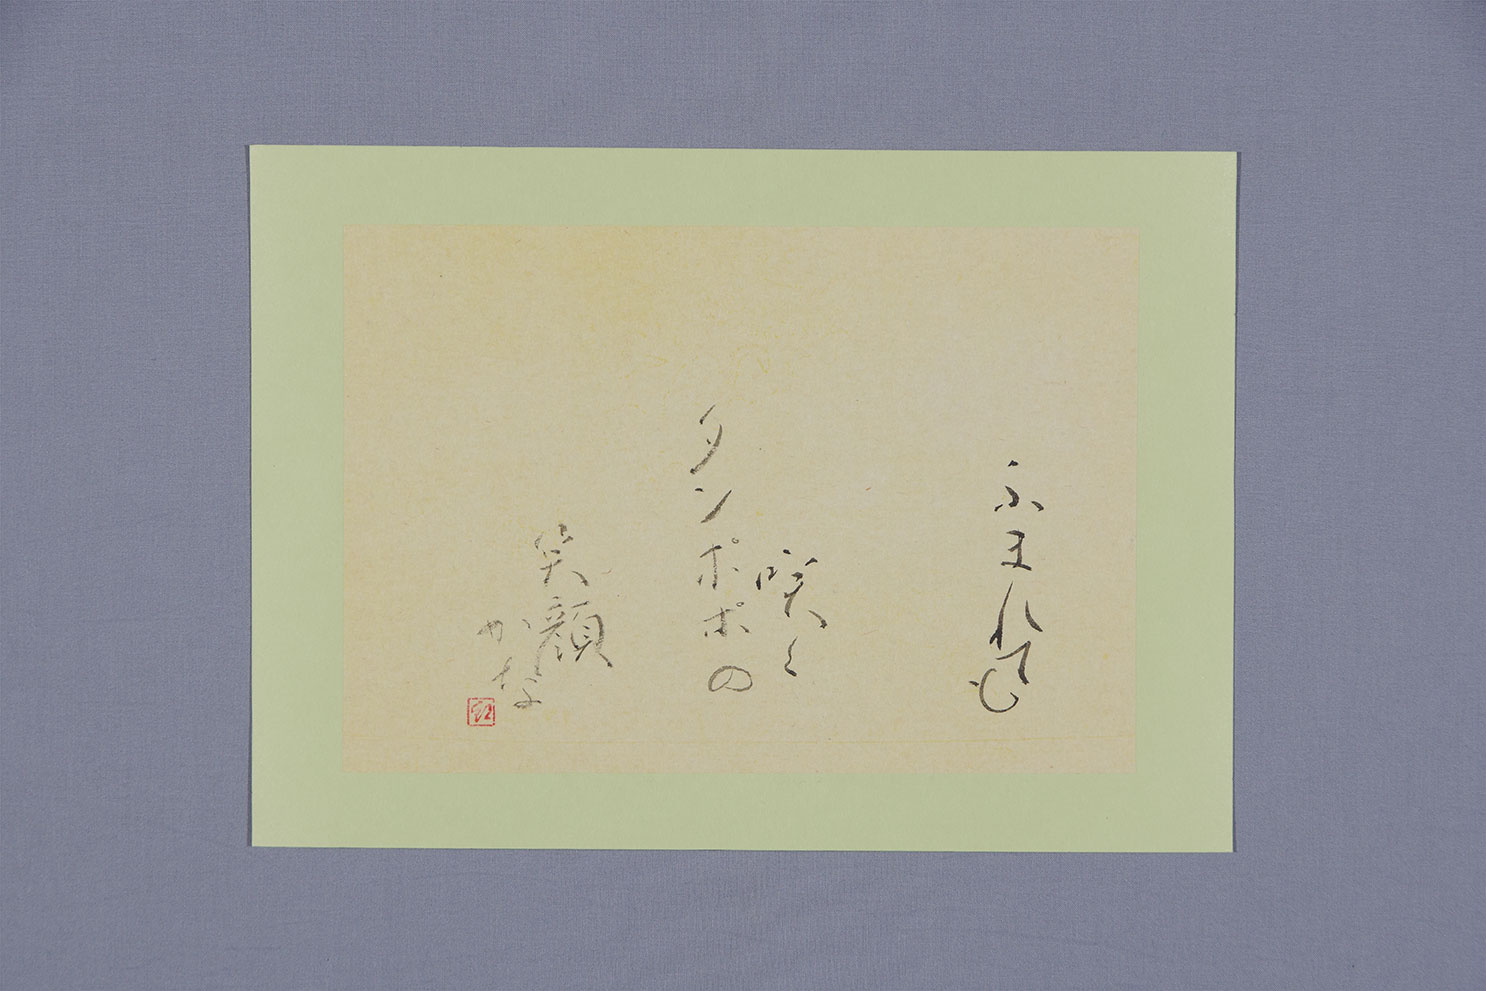 ふまれても
咲く
タンポポの
笑顔
かな